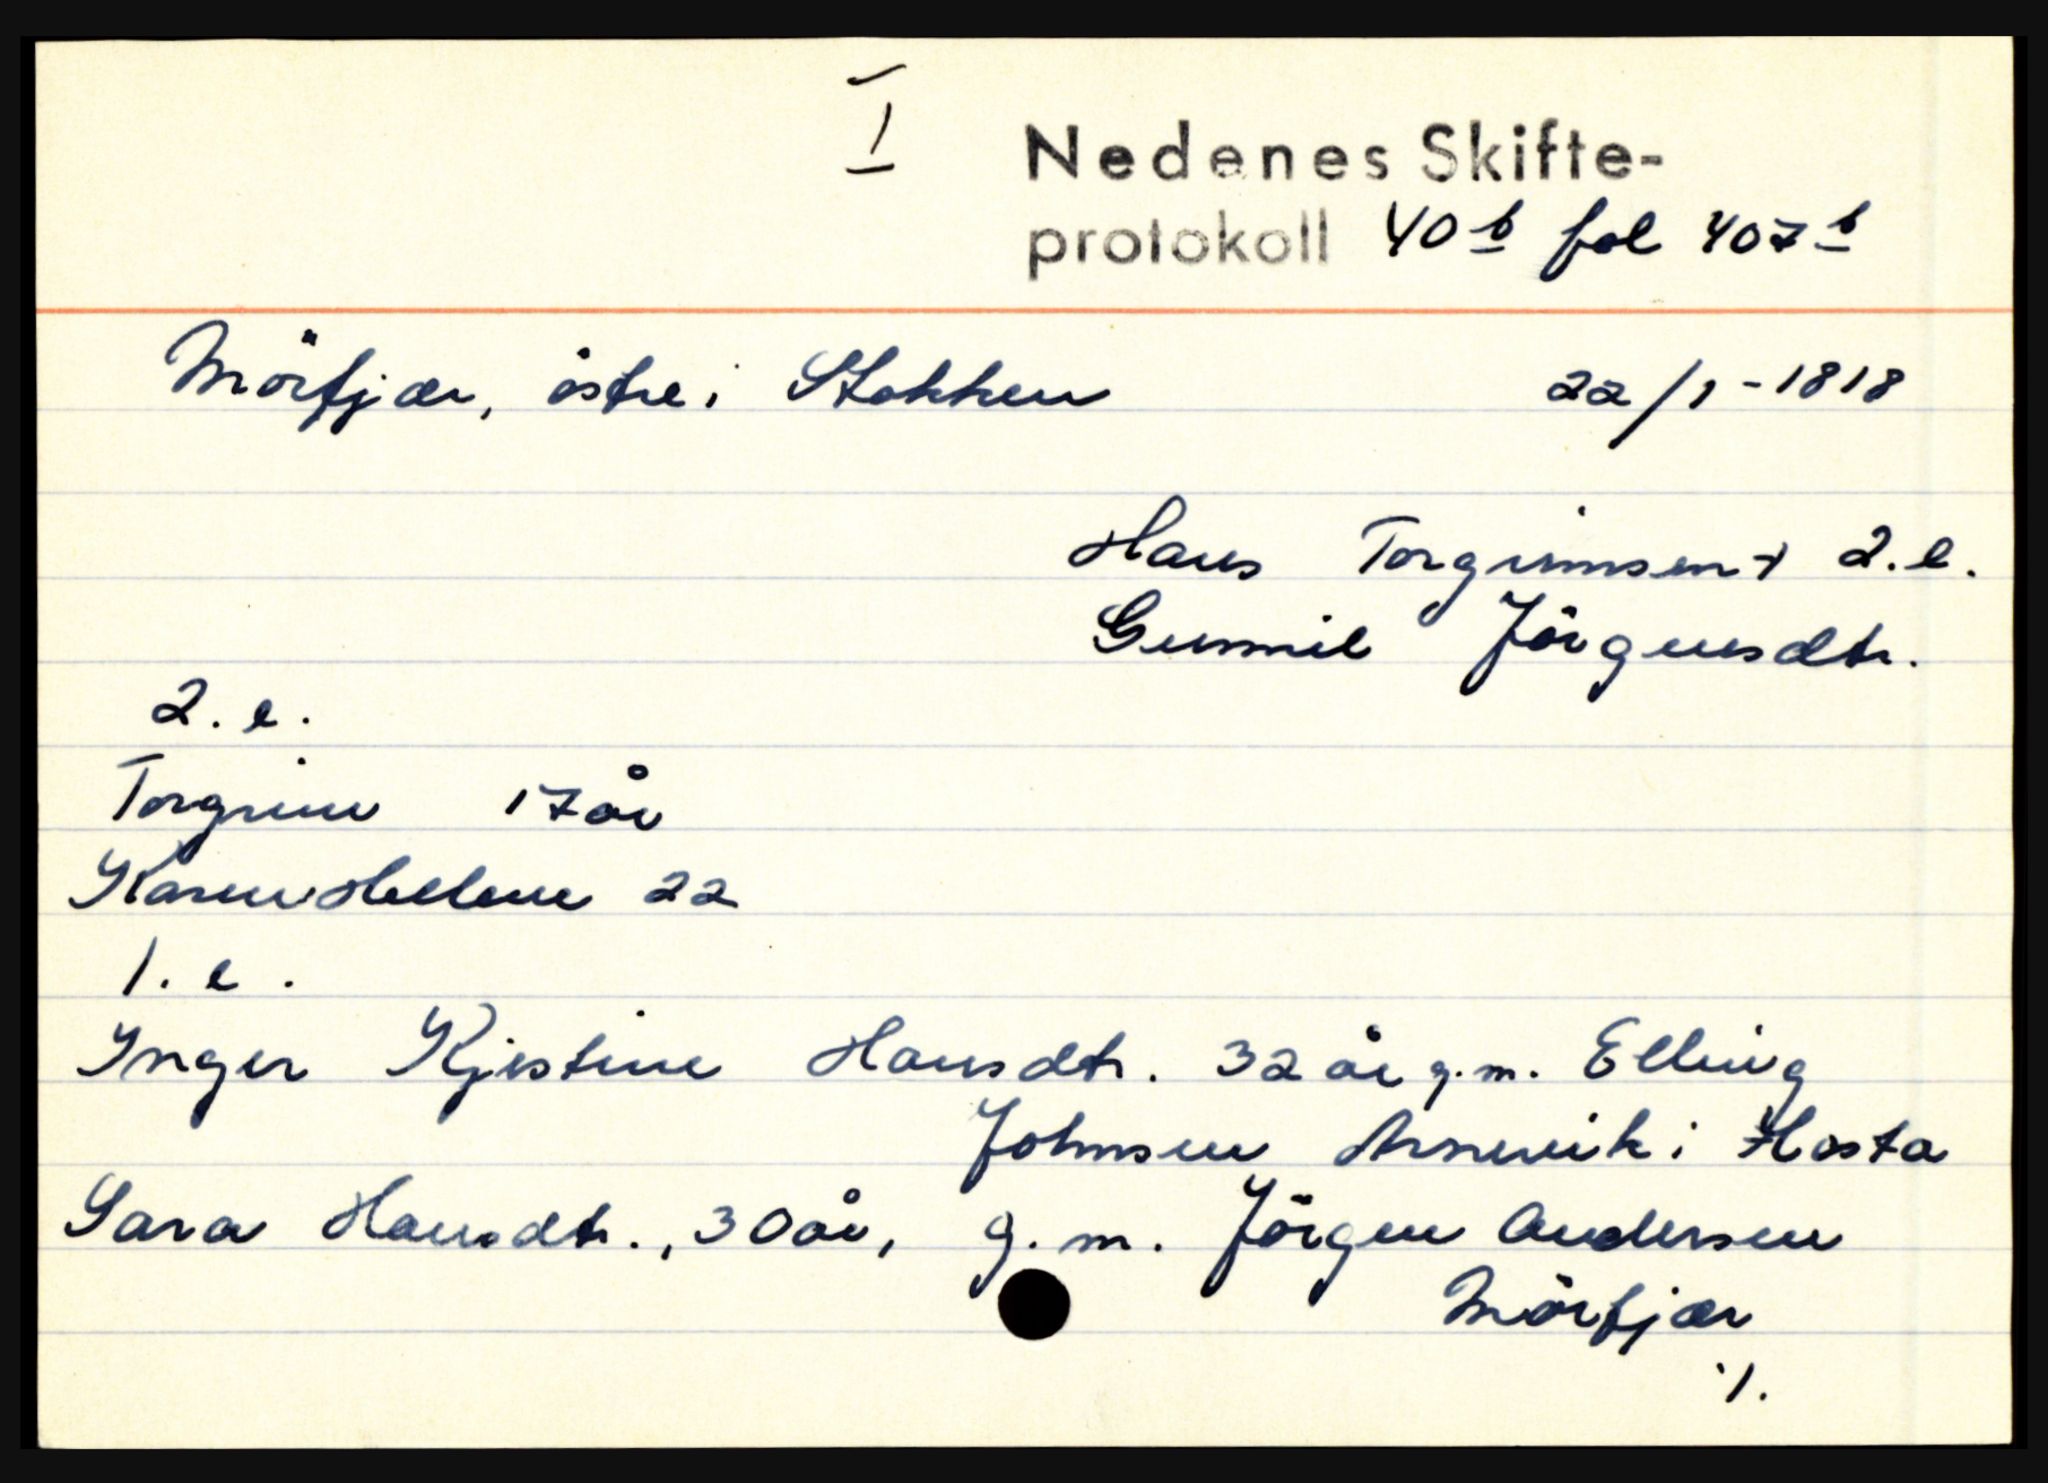 I
Nedenes Skifte-
protokoll 40 b fol 407 b
Mörfjær, östre i Stokken 22/1-1818
Hans Torgrimsen + 2.e.
Gunnil Jörgensdtr.
2.e.
Torgrim 17 år
Karen Hellene 22
1.e.
Inger Kjestine Hansdtr. 32 år g.m. Elling
Johnsen Arnevik i Hosta
Sara Hansdtr., 30 år, g.m. Jörgen Andersen
Mörfjær
./.